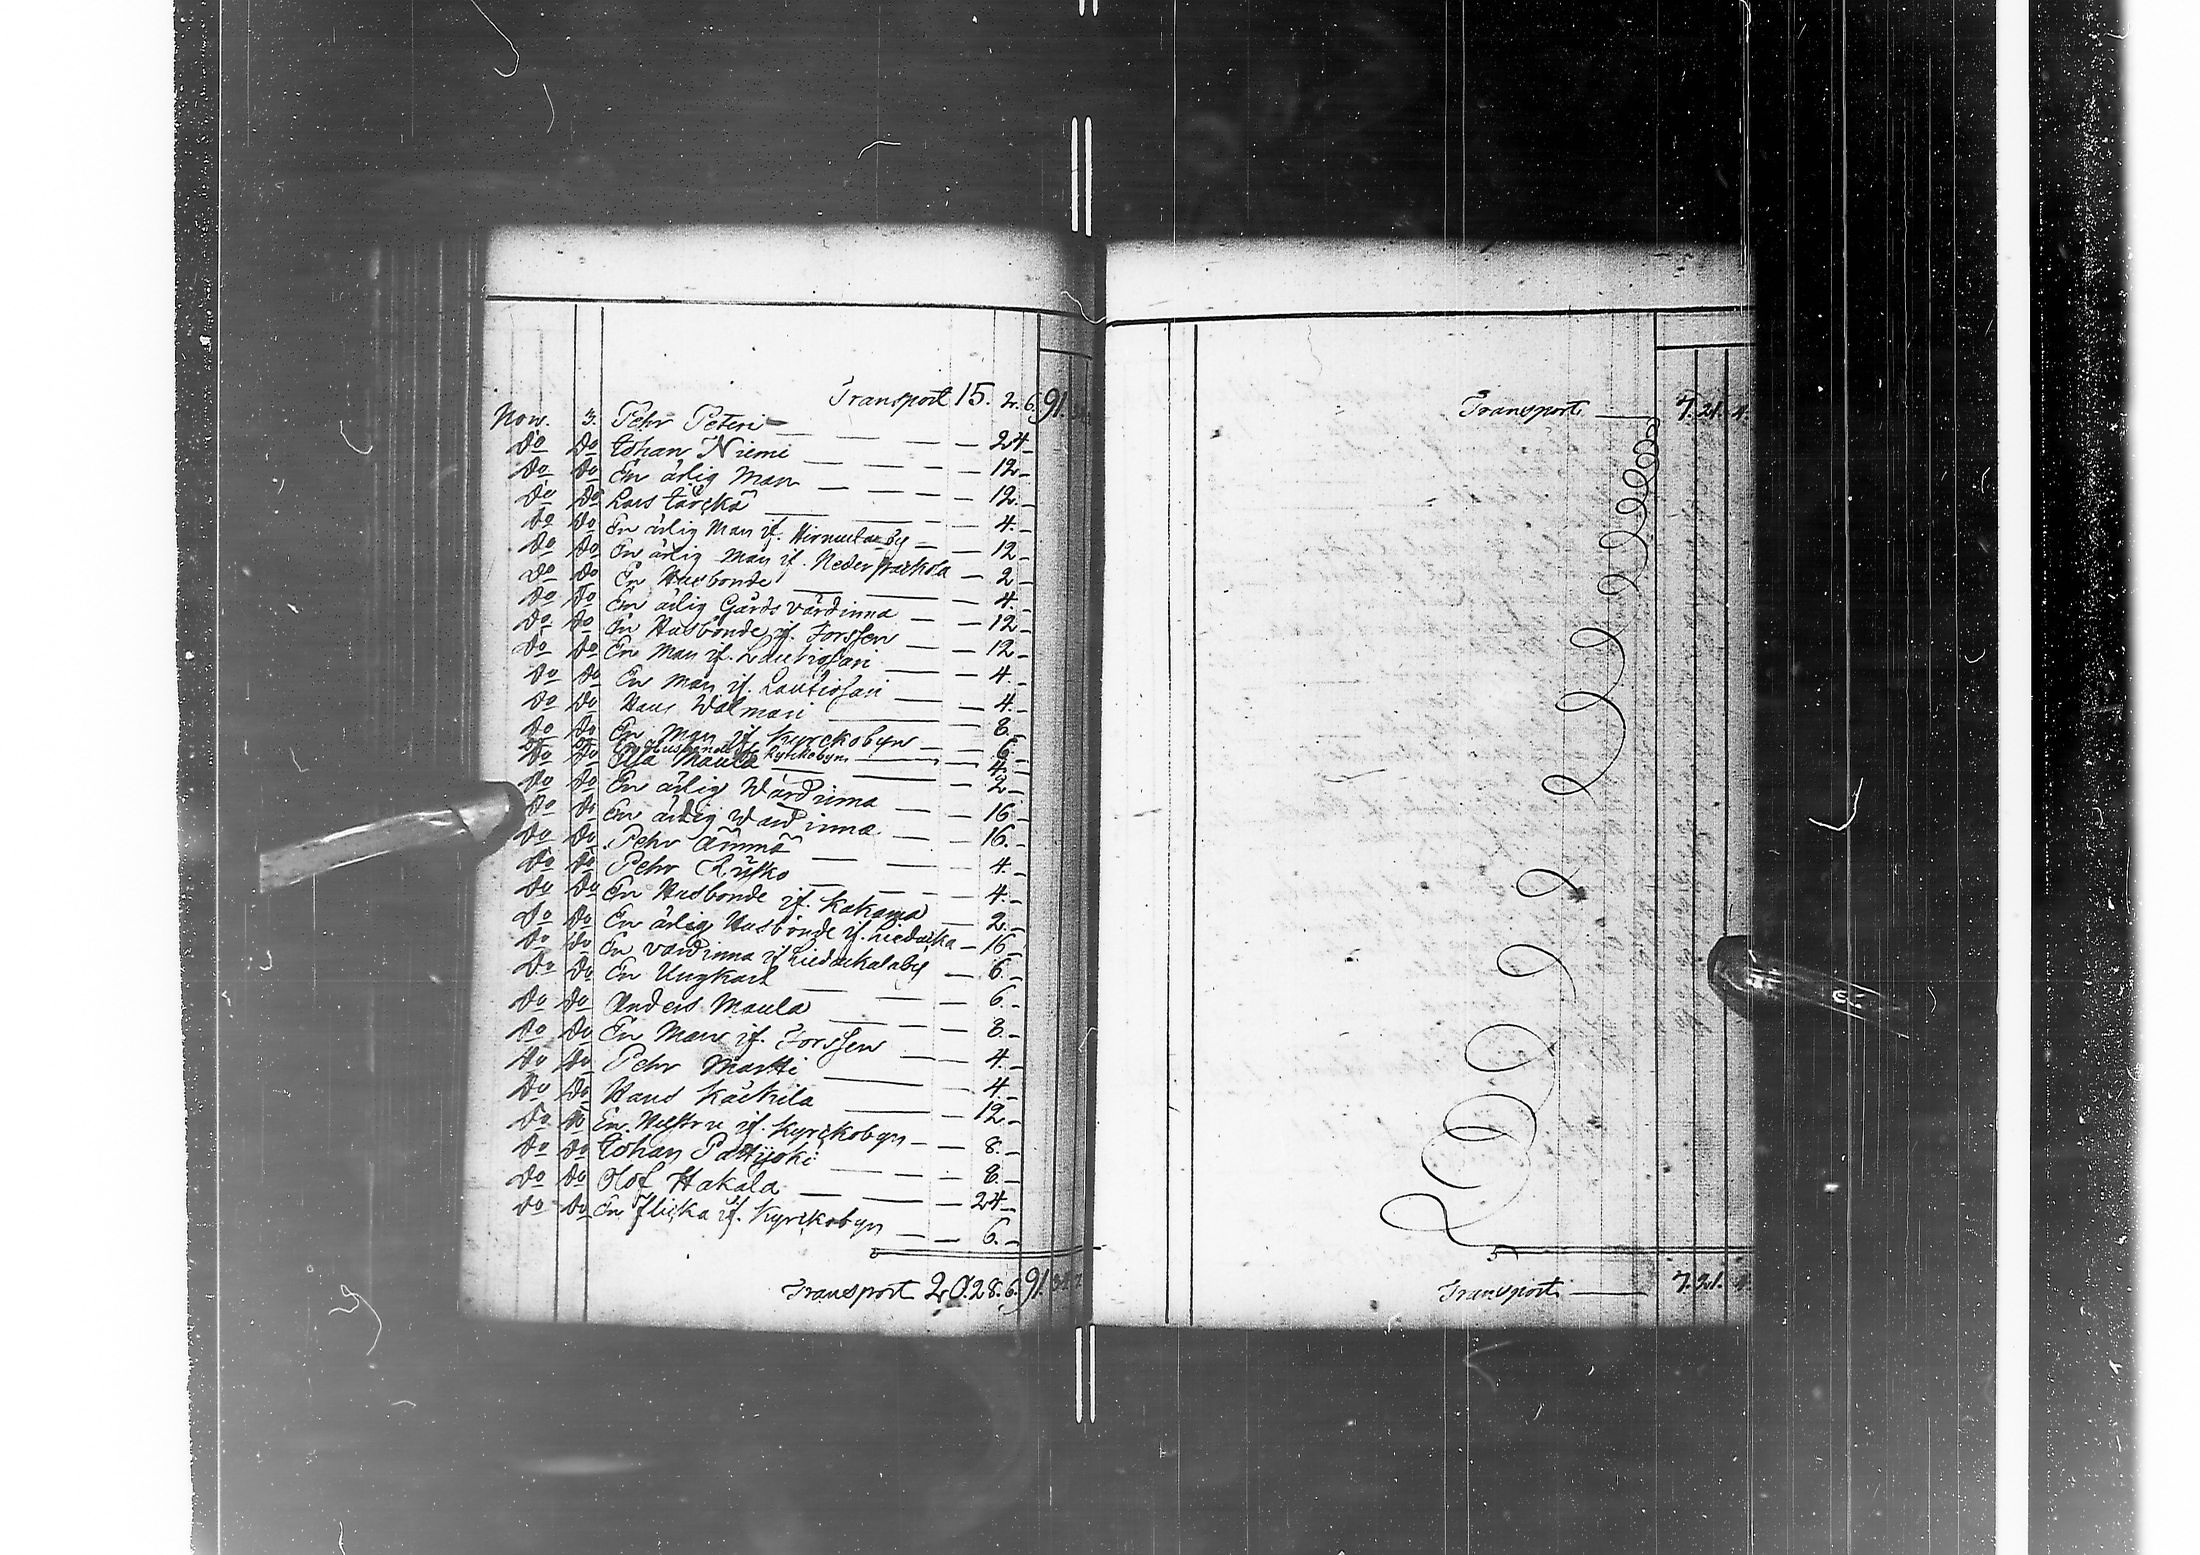 Transport 15. 2. 6. 91.
Nov. 3. Pehr Peteri — — — 24 —
Do Do Johan Niemi — — — 12 —
Do Do En ärlig Man — — — 12 —
Do Do Lars — — 4. —
Do Do En ärlig Man if. by — — 12 —
Do Do En ärlig Man if. Neder — 2 —
Do Do En Husbonde — — 4. —
Do Do En ärlig Gårds värdinna — — 12 —
Do Do En Husbonde if. Forssen — — 12 —
Do Do En Man if. Lautiosari — — 4. —
Do Do En Man if. Lautiosari — — 4. —
Do Do Hans Walmari — — 8. —
Do Do En Man if. Kyrckobyn — — 6 —
Do Do En Husbonde if Kyrckobyn — — 4. —
Do Do Maula — — 2 —
Do Do En ärlig Wärdinna — — 16 —
Do Do En ärlig Wärdinna — — 16. —
Do Do Pehr — — 4. —
Do Do Pehr — — 4. —
Do Do En Husbonde if. Kakama — 2 —
Do Do En ärlig Husbonde if. Liedacka — 16 —
Do Do En värdinna if Liedackalaby — 6 —
Do Do En Ungkarl — — 6. —
Do Do Anders Maula — — — 8. —
Do Do En Man if. Forssen — — 4. —
Do Do Pehr Martti — — 4. —
Do Do Hans — — 12 —
Do Do En if. Kyrckobyn — — 8. —
Do Do Johan — — 8. —
Do Do Olof Hakala — — — 24 —
Do Do En flicka if. Kyrckobyn — — 6. —
Transport 20. 28. 6. 91.
Transport — 7. 21. 4.
Transport — 7. 21. 4.